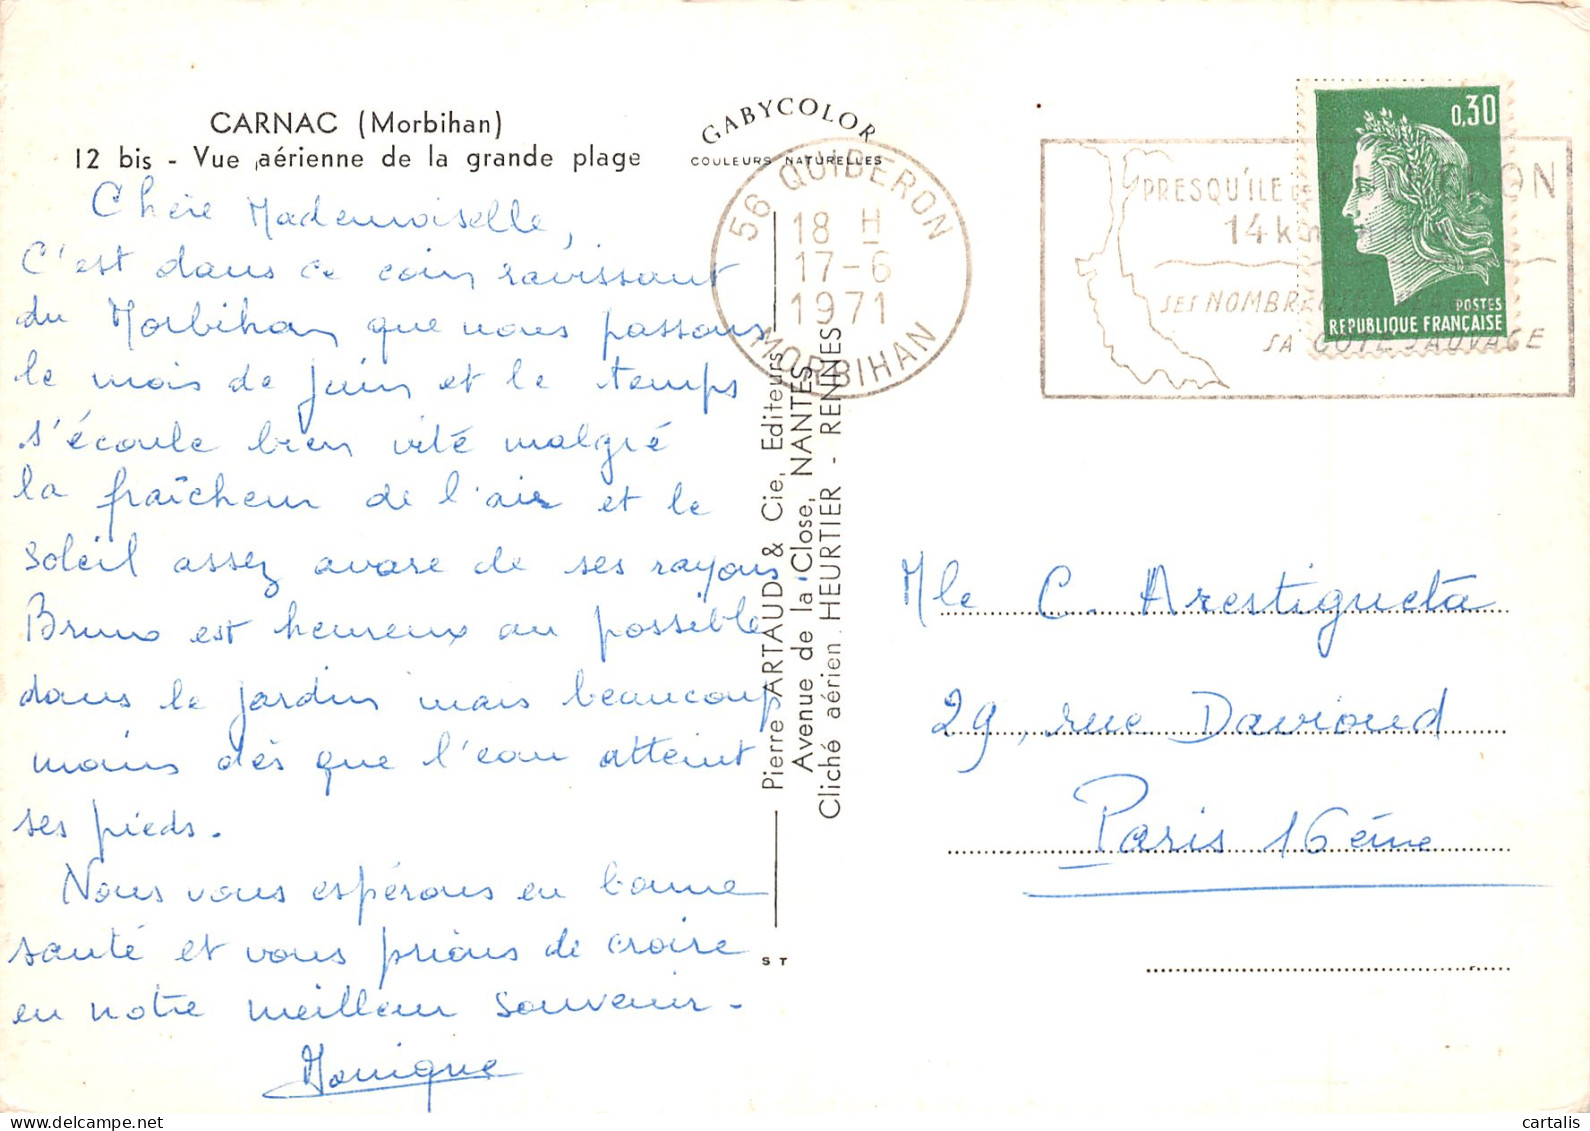 CARNAC (Morbihan)
12 bis - Vue aérienne de la grande plage
GABYCOLOR
COULEURS NATURELLES
Chère Mademoiselle,
C'est dans ce coin ravissant
du Morbihan que nous passons
le mois de Juin et le temps
s'écoule bien vite malgré
la fraîcheur de l'air et le
soleil assez avare de ses rayons
Bruno est heureux au possible
dans le jardin mais beaucoup
moins dès que l'eau atteint
ses pieds.
Nous vous espérons en bonne
santé et vous prions de croire
en notre meilleur souvenir.
Monique
Pierre ARTAUD & Cie, Editeurs
Avenue de la Close, NANTES
Cliché aérien HEURTIER - RENNES
S T
56 QUIBERON
18 H
17-6
1971
MORBIHAN
PRESQU'ÎLE DE
14 k
SES NOMBR
SA CÔTE SAUVAGE
0,30
POSTES
REPUBLIQUE FRANÇAISE
Mle C. Arestigueta
29, rue Davioud
Paris 16ème
cartalis